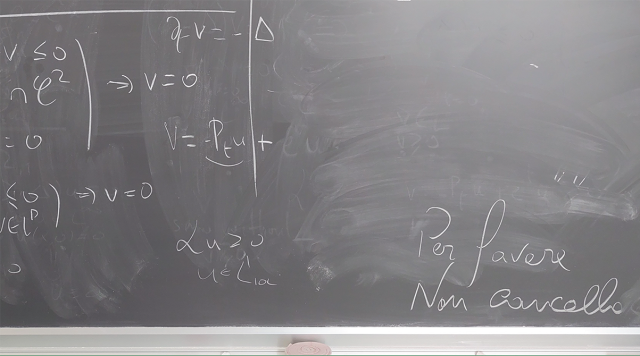 V ≤ 0
∩ C² ) ⇒ V = 0
= 0
≤ 0
V∈Lᵖ ) ⇒ V = 0
0
∂ₜV = - Δ
V = -Pₜu +
Lu ≥ 0
u ∈ L¹loc
Per favore
Non cancello